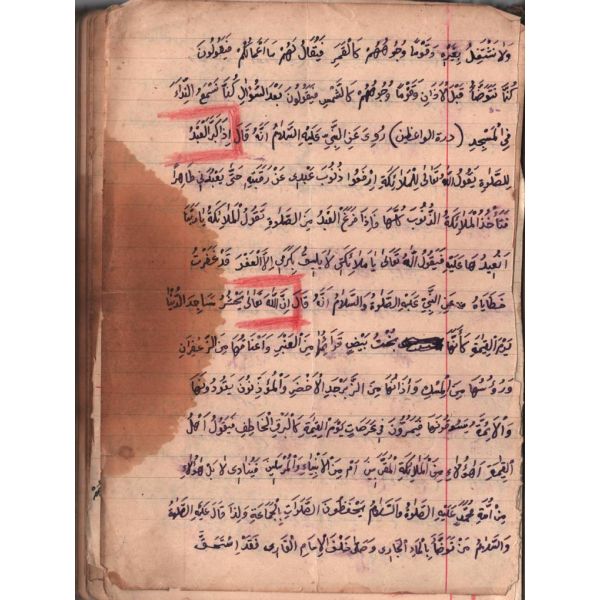 ولا نشتغل بغيره وقوما وجوههم كالقمر فيقال لهم ما اعمالكم فيقولون
كنا نتوضأ قبل الاذان وقوما وجوههم كالشمس فيقولون بعد السؤال كنا نسمع النداء
في المسجد (درة الواعظين) روى عن النبي عليه السلام انه قال اذا كبر العبد
للصلوة يقول الله تعالى للملائكة ارفعوا ذنوب عبدى عن رقبته حتى يعبدني طاهرا
فتأخذ الملائكة الذنوب كلها واذا فرغ العبد من الصلوة تقول الملائكة يا ربنا
انعيدها عليه فيقول الله تعالى يا ملائكتى لا يليق بكرمى الا العفو قد غفرت
خطاياه عن النبي عليه الصلوة والسلام انه قال ان الله تعالى يحشر مساجد الدنيا
يوم القيمة كأنها بخت بيض قوائمها من العنبر واعناقها من الزعفران
ورؤسها من المسك وآذانها من الزبرجد الاخضر والمؤذنون يقودونها
والائمة يسوقونها فيمرون في عرصات يوم القيمة كالبرق الخاطف فيقول اهل
القيمة اهؤلاء من الملائكة المقربين ام من الانبياء والمرسلين فينادى لا بل هؤلاء
من امة محمد عليه الصلوة والسلام يحفظون الصلوات بالجماعة ولذا قال عليه الصلوة
والسلام من توضأ بالماء الجارى وصلى خلف الامام القارى فقد استحق